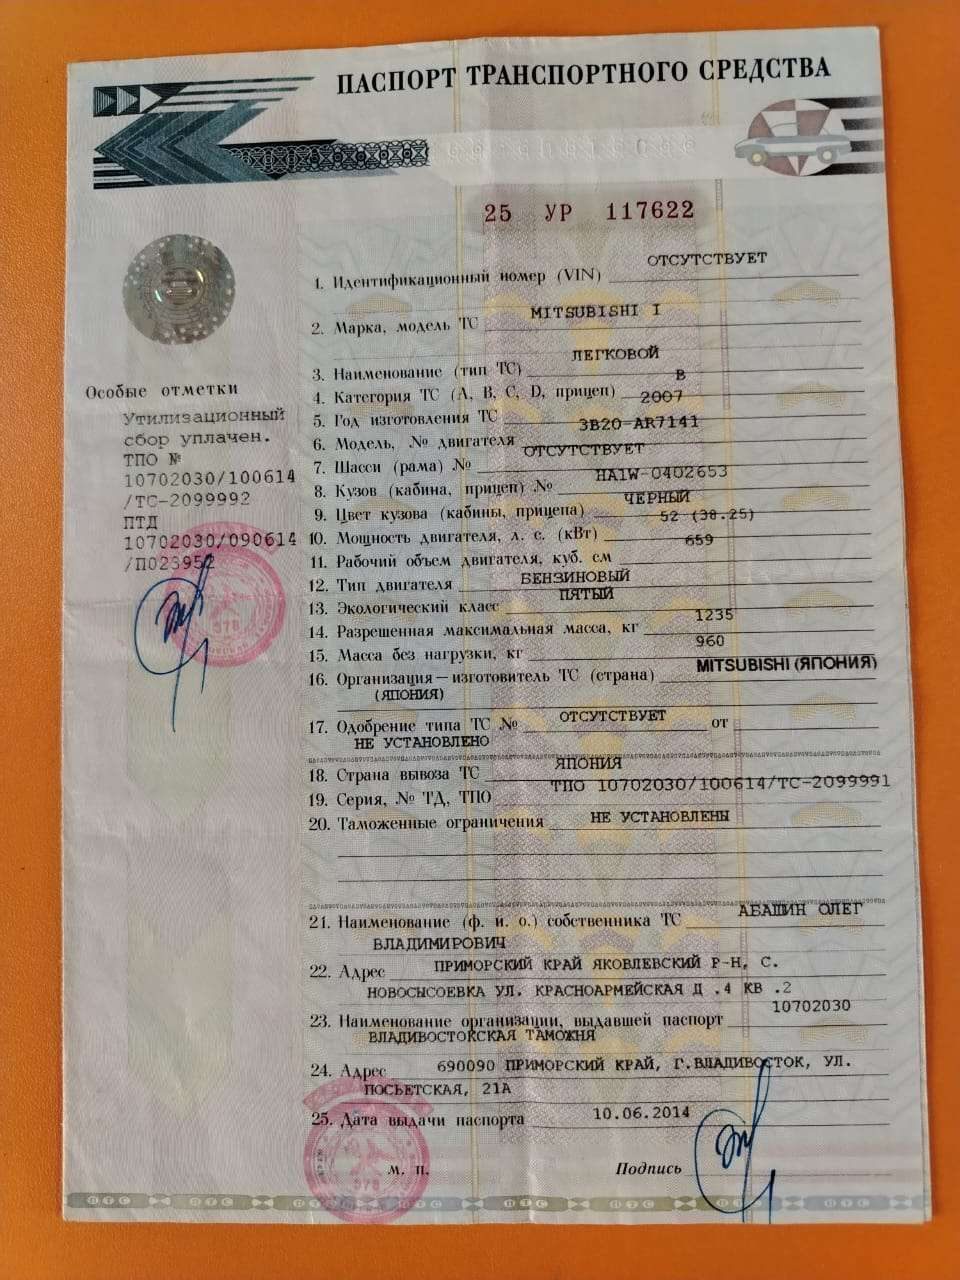 ПАСПОРТ ТРАНСПОРТНОГО СРЕДСТВА
25 УР 117622
1. Идентификационный номер (VIN) ОТСУТСТВУЕТ
2. Марка, модель ТС MITSUBISHI I
3. Наименование (тип ТС) ЛЕГКОВОЙ
4. Категория ТС (A, B, C, D, прицеп) B
5. Год изготовления ТС 2007
6. Модель, № двигателя 3B20-AR7141
7. Шасси (рама) № ОТСУТСТВУЕТ
8. Кузов (кабина, прицеп) № HA1W-0402653
9. Цвет кузова (кабины, прицепа) ЧЕРНЫЙ
10. Мощность двигателя, л. с. (кВт) 52 (38.25)
11. Рабочий объем двигателя, куб. см 659
12. Тип двигателя БЕНЗИНОВЫЙ
13. Экологический класс ПЯТЫЙ
14. Разрешенная максимальная масса, кг 1235
15. Масса без нагрузки, кг 960
16. Организация—изготовитель ТС (страна) MITSUBISHI (ЯПОНИЯ)
(ЯПОНИЯ)
17. Одобрение типа ТС № ОТСУТСТВУЕТ от
НЕ УСТАНОВЛЕНО
18. Страна вывоза ТС ЯПОНИЯ
19. Серия, № ТД, ТПО ТПО 10702030/100614/ТС-2099991
20. Таможенные ограничения НЕ УСТАНОВЛЕНЫ
21. Наименование (ф. и. о.) собственника ТС АБАШИН ОЛЕГ
ВЛАДИМИРОВИЧ
22. Адрес ПРИМОРСКИЙ КРАЙ ЯКОВЛЕВСКИЙ Р-Н, С.
НОВОСЫСОЕВКА УЛ. КРАСНОАРМЕЙСКАЯ Д .4 КВ .2
23. Наименование организации, выдавшей паспорт 10702030
ВЛАДИВОСТОКСКАЯ ТАМОЖНЯ
24. Адрес 690090 ПРИМОРСКИЙ КРАЙ, Г.ВЛАДИВОСТОК, УЛ.
ПОСЬЕТСКАЯ, 21А
25. Дата выдачи паспорта 10.06.2014
М. П. Подпись
Особые отметки
Утилизационный
сбор уплачен.
ТПО №
10702030/100614
/ТС-2099992
ПТД
10702030/090614
/П023952
ПТС ПТС ПТС ПТС ПТС